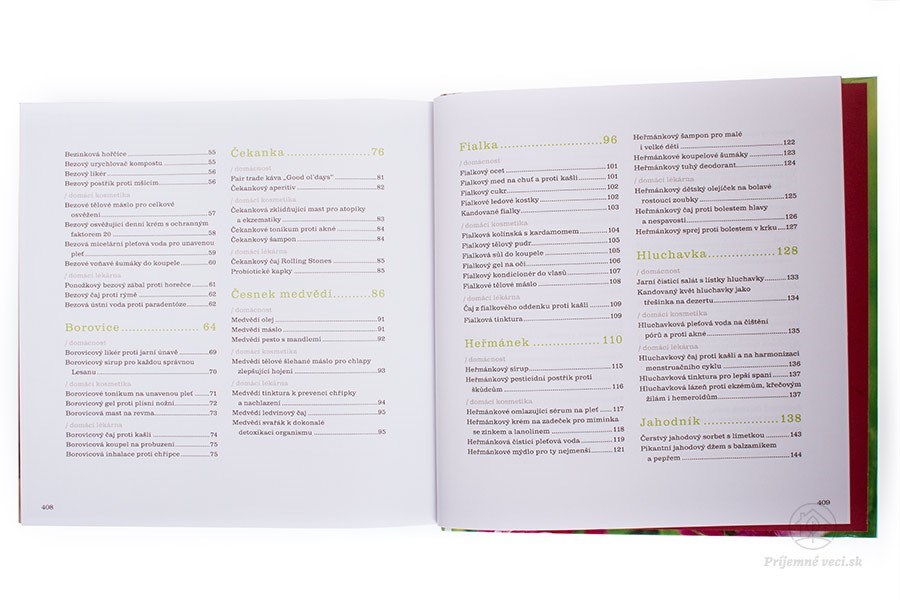 Bezinková hořčice 55
Bezový urychlovač kompostu 55
Bezový likér 56
Bezový postřik proti mšicím 56
/ domácí kosmetika
Bezové tělové máslo pro celkové
osvěžení 57
Bezový osvěžující denní krém s ochranným
faktorem 20 58
Bezová micelární pleťová voda pro unavenou
pleť 59
Bezové voňavé šumáky do koupele 60
/ domácí lékárna
Ponožkový bezový zábal proti horečce 61
Bezový čaj proti rýmě 62
Bezová ústní voda proti paradentóze 62
Borovice 64
/ domácnost
Borovicový likér proti jarní únavě 69
Borovicový sirup pro každou správnou
Lesanu 70
/ domácí kosmetika
Borovicové tonikum na unavenou pleť 71
Borovicový gel proti plísni nožní 72
Borovicová mast na revma 73
/ domácí lékárna
Borovicový čaj proti kašli 74
Borovicová koupel na probuzení 75
Borovicová inhalace proti chřipce 75
408
Čekanka 76
/ domácnost
Fair trade káva „Good ol'days" 81
Čekankový aperitiv 82
/ domácí kosmetika
Čekanková zklidňující mast pro atopiky
a ekzematiky 83
Čekankové tonikum proti akné 84
Čekankový šampon 84
/ domácí lékárna
Čekankový čaj Rolling Stones 85
Probiotické kapky 85
Česnek medvědí 86
/ domácnost
Medvědí olej 91
Medvědí máslo 91
Medvědí pesto s mandlemi 92
/ domácí kosmetika
Medvědí tělové šlehané máslo pro chlapy
zlepšující hojení 93
/ domácí lékárna
Medvědí tinktura k prevenci chřipky
a nachlazení 94
Medvědí ledvinový čaj 95
Medvědí svařák k dokonalé
detoxikaci organismu 95
Fialka 96
/ domácnost
Fialkový ocet 101
Fialkový med na chuť a proti kašli 101
Fialkový cukr 102
Fialkové ledové kostky 102
Kandované fialky 103
/ domácí kosmetika
Fialková kolínská s kardamomem 104
Fialkový tělový pudr 105
Fialková sůl do koupele 105
Fialkový gel na oči 106
Fialkový kondicionér do vlasů 107
Fialkové tělové máslo 108
/ domácí lékárna
Čaj z fialkového oddenku proti kašli 109
Fialková tinktura 109
Heřmánek 110
/ domácnost
Heřmánkový sirup 115
Heřmánkový pesticidní postřik proti
škůdcům 116
/ domácí kosmetika
Heřmánkové omlazující sérum na pleť 117
Heřmánkový krém na zadeček pro miminka
se zinkem a lanolinem 118
Heřmánková čisticí pleťová voda 119
Heřmánkové mýdlo pro ty nejmenší 121
Heřmánkový šampon pro malé
i velké děti 122
Heřmánkové koupelové šumáky 123
Heřmánkový tuhý deodorant 124
/ domácí lékárna
Heřmánkový dětský olejíček na bolavé
rostoucí zoubky 125
Heřmánkový čaj proti bolestem hlavy
a nespavosti 126
Heřmánkový sprej proti bolestem v krku 127
Hluchavka 128
/ domácnost
Jarní čisticí salát s lístky hluchavky 133
Kandovaný květ hluchavky jako
třešinka na dezertu 134
/ domácí kosmetika
Hluchavková pleťová voda na čištění
pórů a proti akné 135
/ domácí lékárna
Hluchavkový čaj proti kašli a na harmonizaci
menstruačního cyklu 136
Hluchavková tinktura pro lepší spaní 137
Hluchavková lázeň proti ekzémům, křečovým
žilám i hemeroidům 137
Jahodník 138
Čerstvý jahodový sorbet s limetkou 143
Pikantní jahodový džem s balzamikem
a pepřem 144
409
Príjemné veci.sk